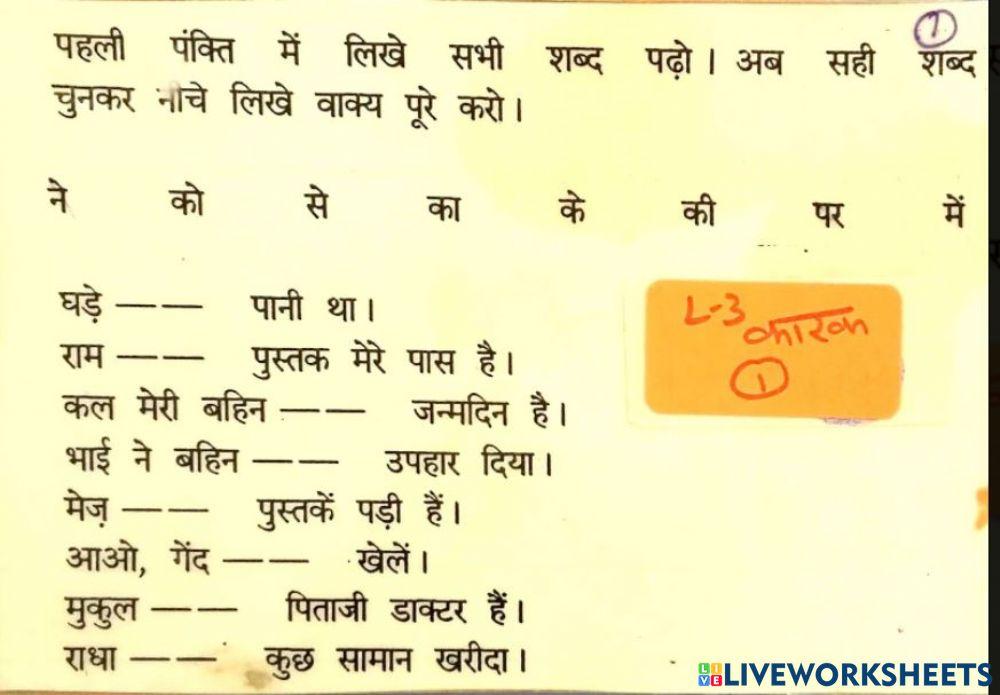 7
पहली पंक्ति में लिखे सभी शब्द पढ़ो। अब सही शब्द
चुनकर नीचे लिखे वाक्य पूरे करो।
ने को से का के की पर में
घड़े —— पानी था।
राम —— पुस्तक मेरे पास है।
कल मेरी बहिन —— जन्मदिन है।
भाई ने बहिन —— उपहार दिया।
मेज़ —— पुस्तकें पड़ी हैं।
आओ, गेंद —— खेलें।
मुकुल —— पिताजी डाक्टर हैं।
राधा —— कुछ सामान खरीदा।
L-3 कारक
1
LIVEWORKSHEETS